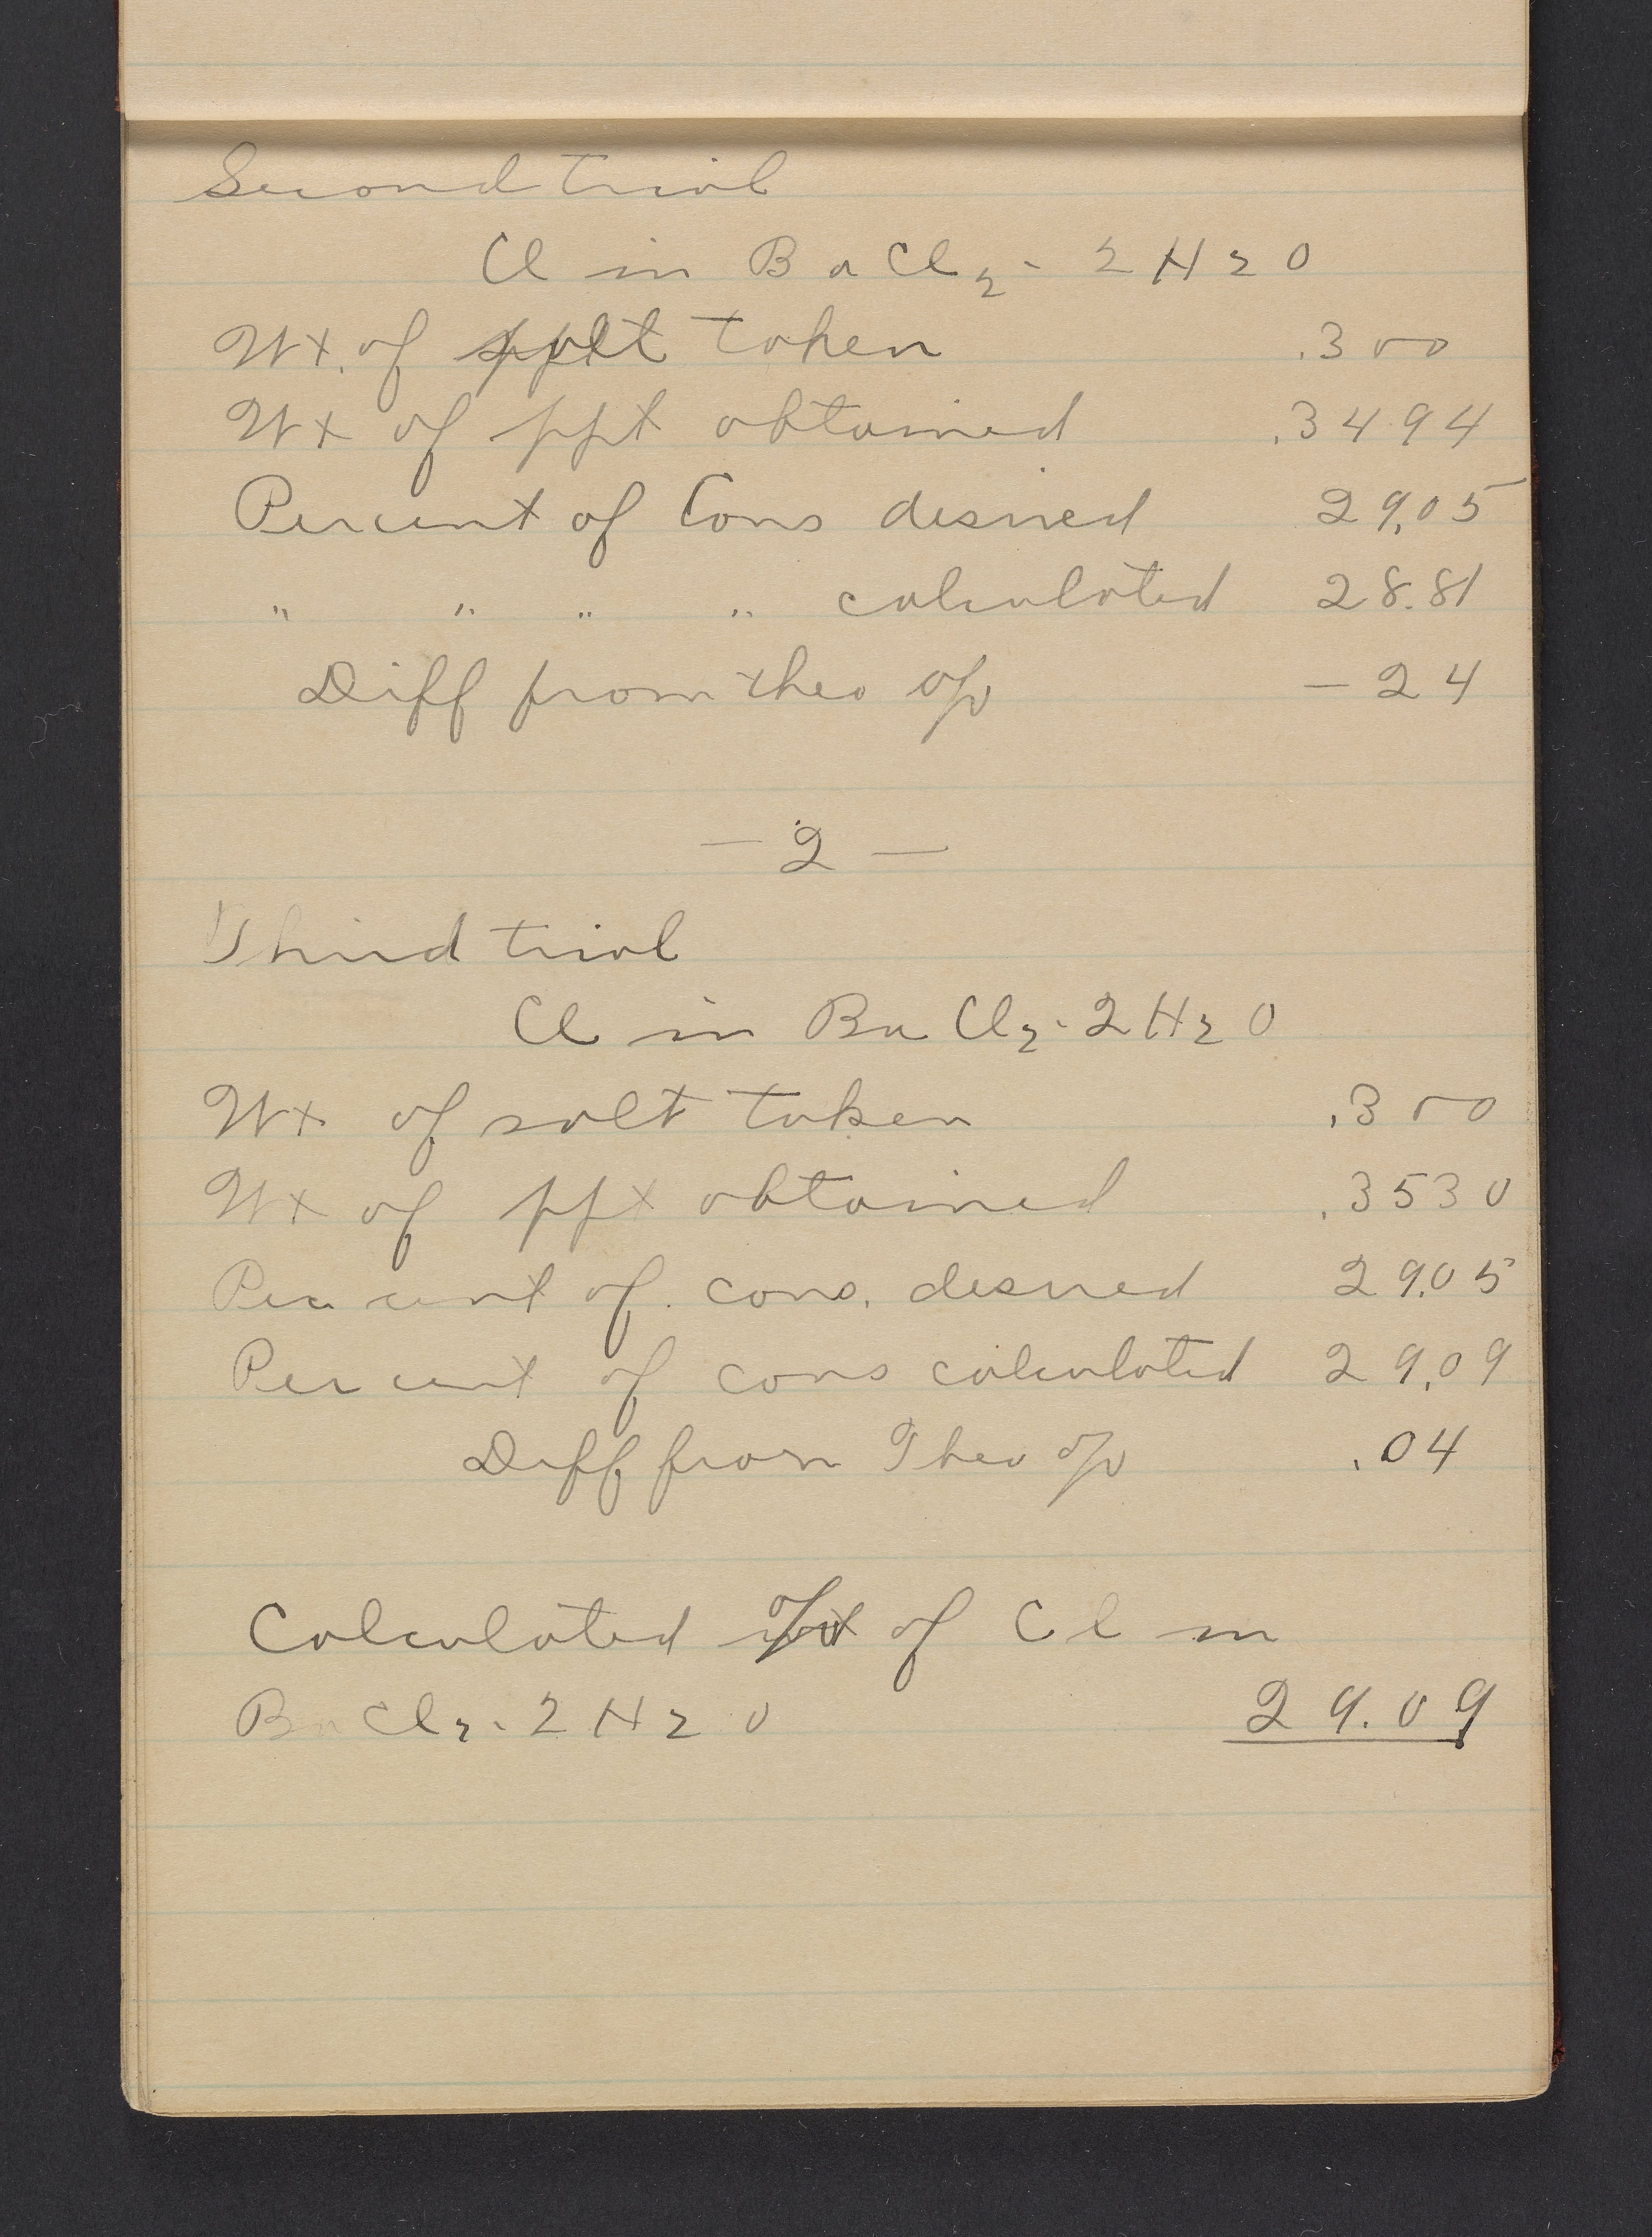 Second trial
Cl in BaCl2 - 2H2O
Wt. of salt taken .300
Wt of ppt obtained .3494
Percent of Cons desired 29.05
" " " " calculated 28.81
Diff from theo % - 24
- 2 -
Third trial
Cl in BaCl2 - 2H2O
Wt of salt taken .300
Wt of ppt obtained .3530
Percent of cons. desired 29.05
Percent of cons calculated 29.09
Diff from Theo % .04
Calculated % of Cl in
BaCl2 . 2H2O 29.09